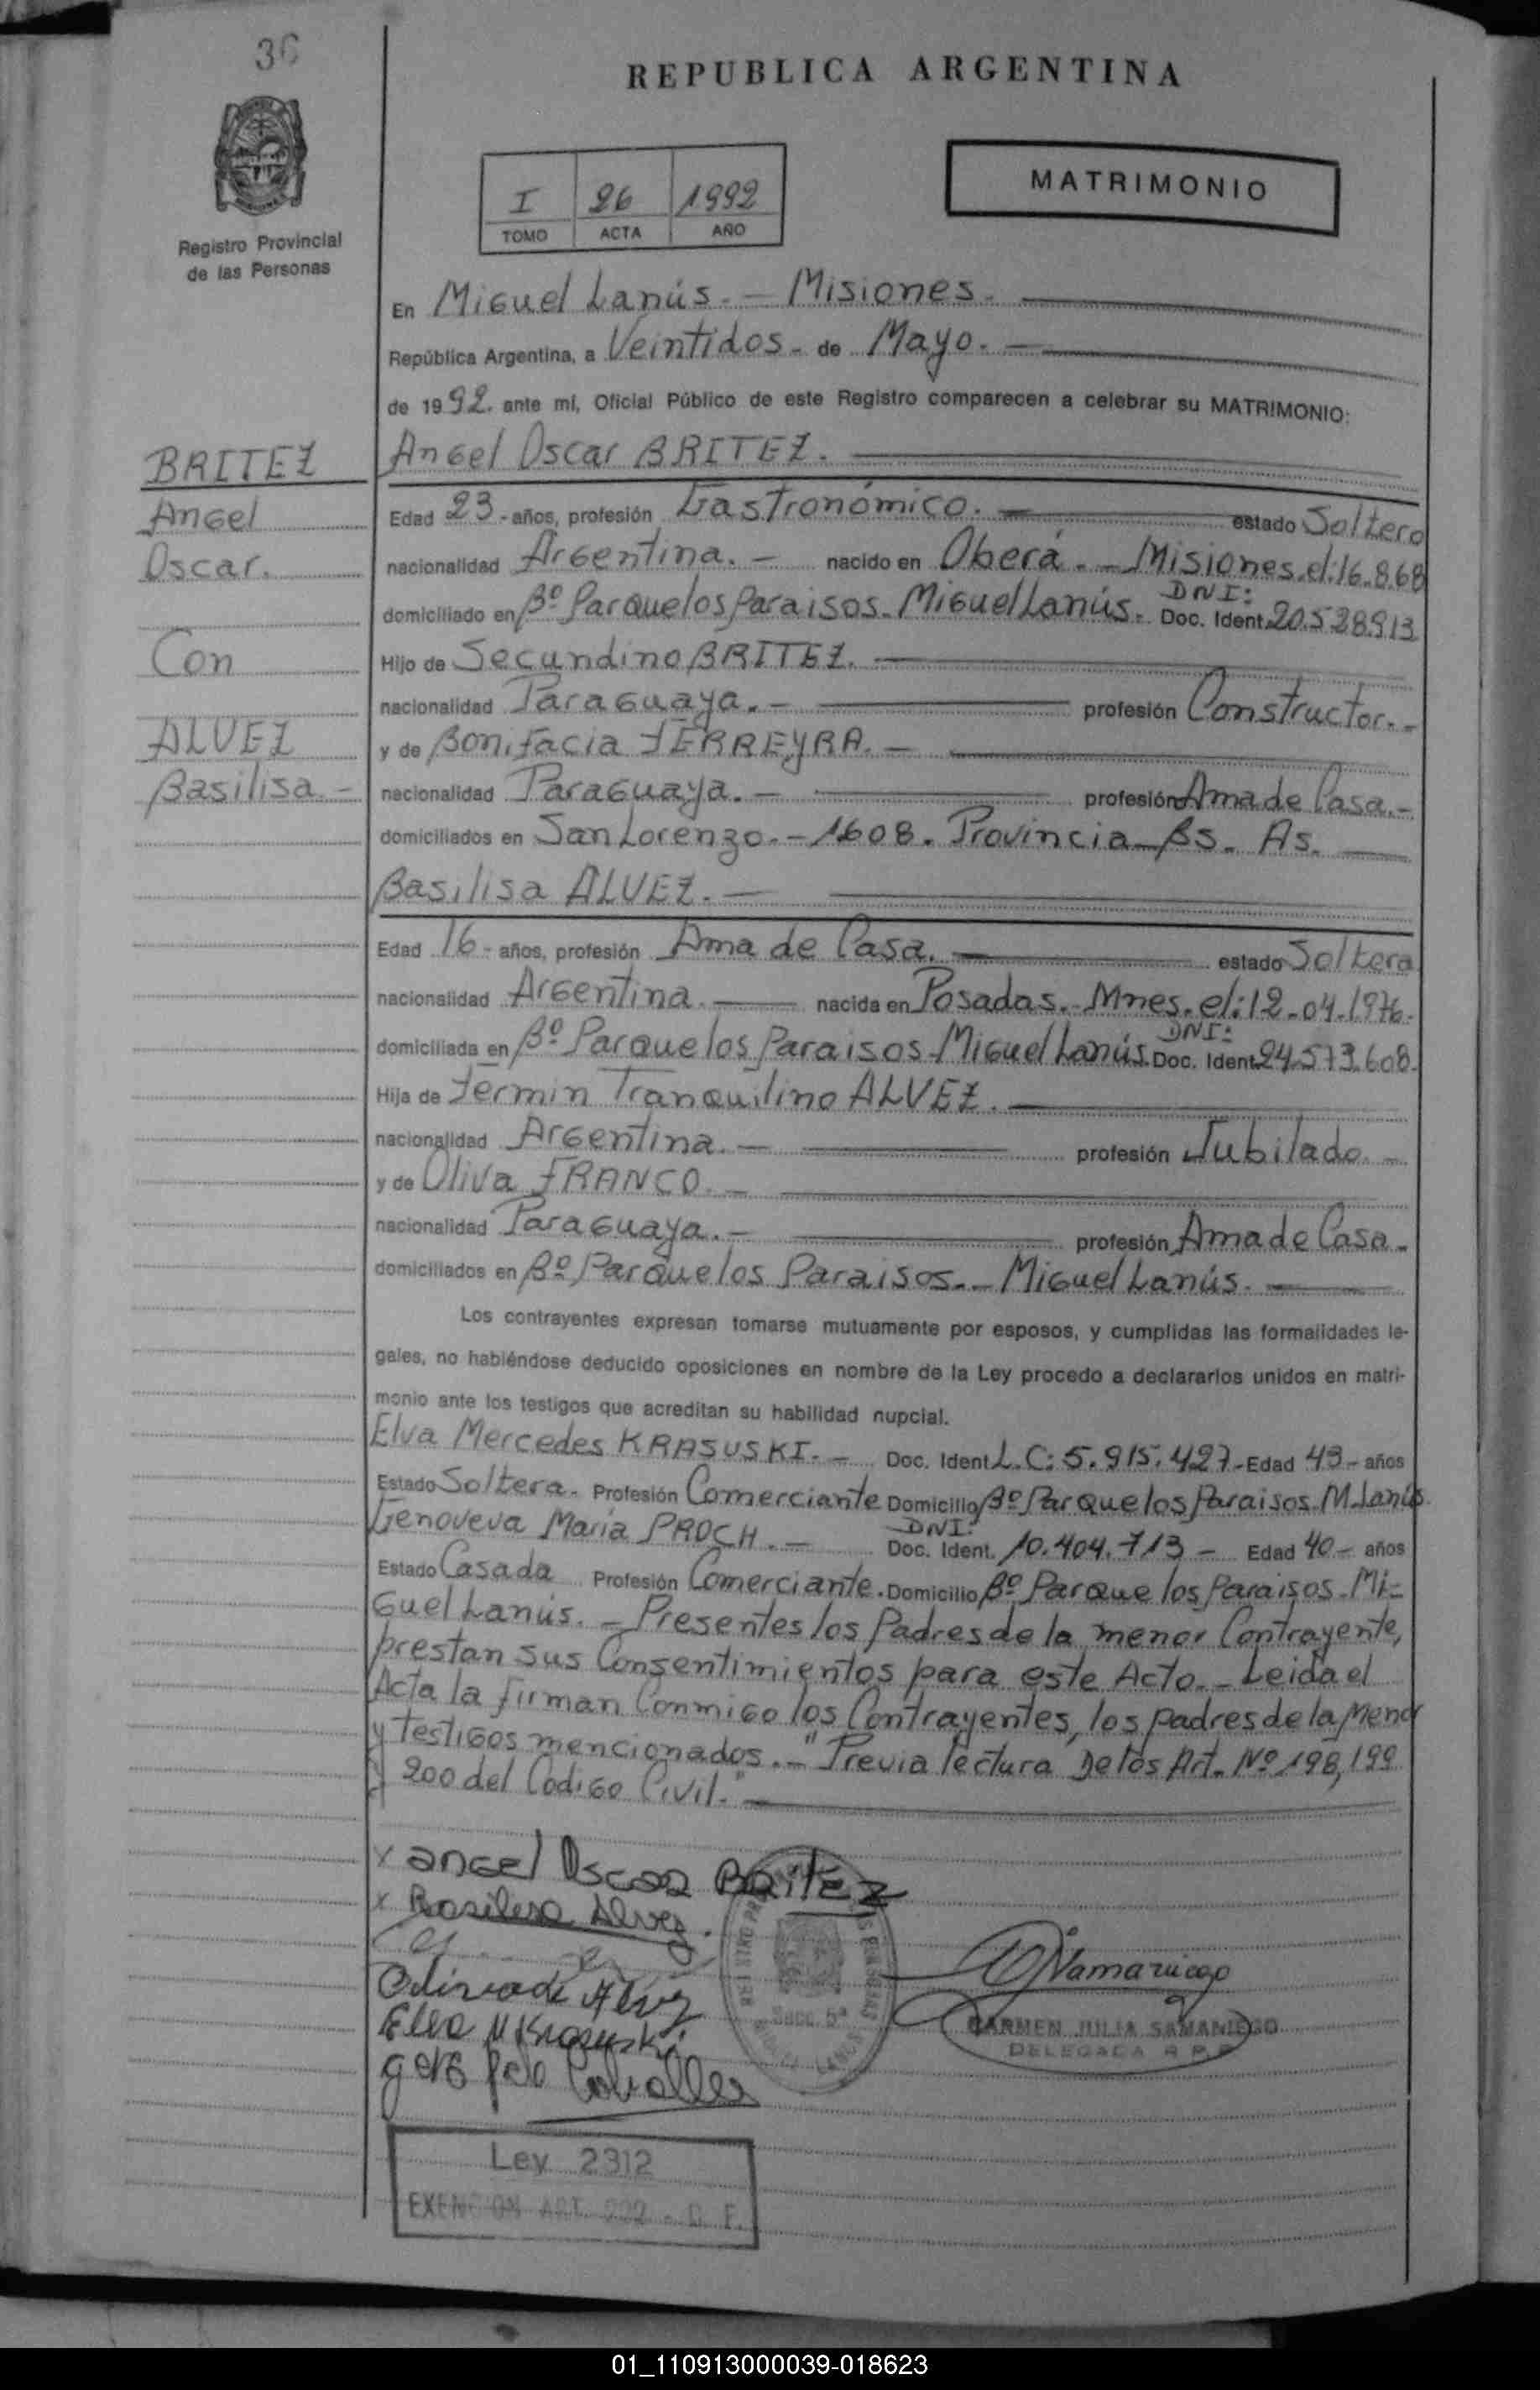 36
REPUBLICA ARGENTINA
Registro Provincial
de las Personas
I 26 1992
TOMO ACTA AÑO
MATRIMONIO
En Miguel Lanús. - Misiones.
República Argentina, a Veintidos - de Mayo. -
de 1992. ante mí, Oficial Público de este Registro comparecen a celebrar su MATRIMONIO:
BRITEZ
Angel
Oscar.
Con
ALVEZ
Basilisa. -
Angel Oscar BRITEZ.
Edad 23 - años, profesión Gastronómico. - estado Soltero
nacionalidad Argentina. - nacido en Oberá. - Misiones. el: 16.8.68
domiciliado en Bº Parque los Paraisos. Miguel Lanús. DNI: Doc. Ident. 20.538.913
Hijo de Secundino BRITEZ. -
nacionalidad Paraguaya. - profesión Constructor. -
y de Bonifacia FERREYRA. -
nacionalidad Paraguaya. - profesión Ama de Casa. -
domiciliados en San Lorenzo. - 1608. Provincia Bs. As.
Basilisa ALVEZ. -
Edad 16 - años, profesión Ama de Casa. estado Soltera
nacionalidad Argentina. nacida en Posadas. Mnes. el: 12-04-1976.
domiciliada en Bº Parque los Paraisos - Miguel Lanús. DNI: Doc. Ident. 24.573.608.
Hija de Fermin Tranquilino ALVEZ.
nacionalidad Argentina. - profesión Jubilado. -
y de Oliva FRANCO. -
nacionalidad Paraguaya. - profesión Ama de Casa -
domiciliados en Bº Parque los Paraisos. - Miguel Lanús.
Los contrayentes expresan tomarse mutuamente por esposos, y cumplidas las formalidades le-
gales, no habiéndose deducido oposiciones en nombre de la Ley procedo a declararlos unidos en matri-
monio ante los testigos que acreditan su habilidad nupcial.
Elva Mercedes KRASUSKI. - Doc. Ident. L.C: 5.915.427 - Edad 43 - años
Estado Soltera. Profesión Comerciante Domicilio Bº Parque los Paraisos. M. Lanús.
Genoveva María PROCH. - DNI: Doc. Ident. 10.404.713 - Edad 40 - años
Estado Casada Profesión Comerciante. Domicilio Bº Parque los Paraisos. Mi-
guel Lanús. - Presentes los Padres de la menor Contrayente,
prestan sus Consentimientos para este Acto. - Leida el
Acta la firman Conmigo los Contrayentes, los padres de la Menor
y Testigos mencionados. - "Previa lectura De los Art. Nº 198, 199
y 200 del Codigo Civil." -
x angel Oscar Britez
x Basilisa Alvez.
CARMEN JULIA SAMANIEGO
DELEGADA R P P
Ley 2312
EXENCION ART. 222 - C. F.
01_110913000039-018623